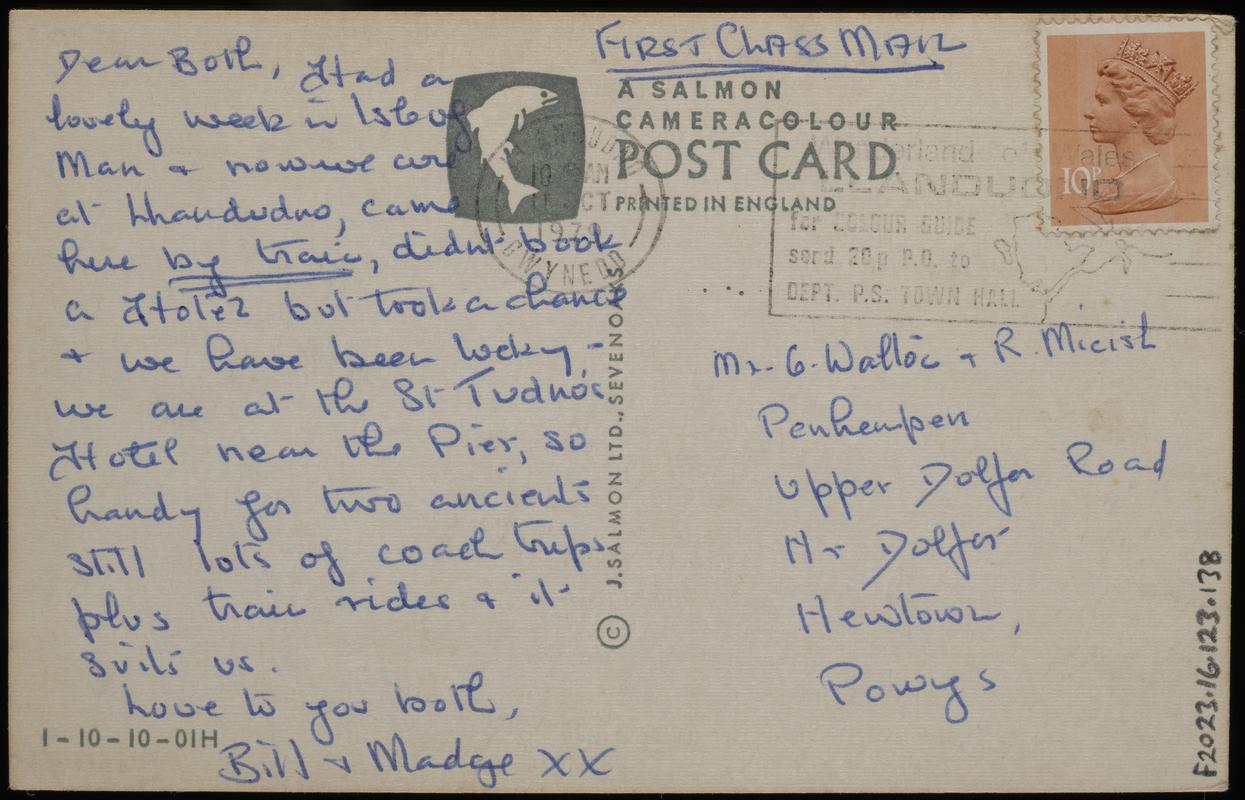 Dear Both, Had a
lovely week in Isle of
Man + now we are
at Llandudno, came
here by train, didn't book
a Hotel but took a chance
+ we have been lucky -
we are at the St Tudno's
Hotel near the Pier, so
handy for two ancients
still lots of coach trips
plus train rides + it
suits us.
Love to you both,
Bill + Madge XX
1-10-10-01H
FIRST CLASS MAIL
A SALMON
CAMERACOLOUR
POST CARD
PRINTED IN ENGLAND
© J. SALMON LTD., SEVENOAKS
LLANDUDNO
10 AM
OCT
1979
GWYNEDD
Wonderland of Wales
LLANDUDNO
for COLOUR GUIDE
send 20p P.O. to
DEPT. P.S. TOWN HALL
10P
Mr. G. Walloc + R.
Upper Dolfor Road
Nr Dolfor
Newtown,
Powys
F2023.16.123.138